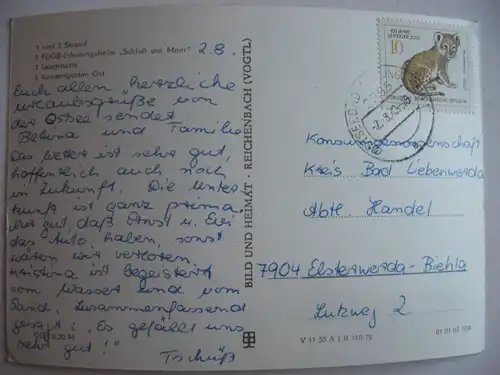 1 und 3 Strand 2.8.
2 FDGB-Erholungsheim „Schloß am Meer"
3 Leuchtturm
4 Konzertgarten Ost
Euch allen „herzliche
Urlaubsgrüße von
der Ostsee sendet
Betina und Familie
Das Wetter ist sehr gut,
hoffentlich auch noch
in Zukunft. Die Unter
kunft ist ganz prima
nur gut, daß Ernst u. Evi
das Auto, haben, sonst
wären wir verloren.
Kristina ist begeistert
vom Wasser und vom
Sand. Zusammenfassend
gesagt: „Es gefällt uns
sehr gut!"
Tschüß
0,20 M
BILD UND HEIMAT · REICHENBACH (VOGTL)
100 JAHRE
LEIPZIGER ZOO
10
DEUTSCHE DEMOKRATISCHE REPUBLIK
Konsumgenossenschaft
Kreis Bad Liebenwerda
Abtl Handel
7904 Elsterwerda-Biehla
Lutzweg 2
V 11 50 A 1 B 110/75
01 01 03